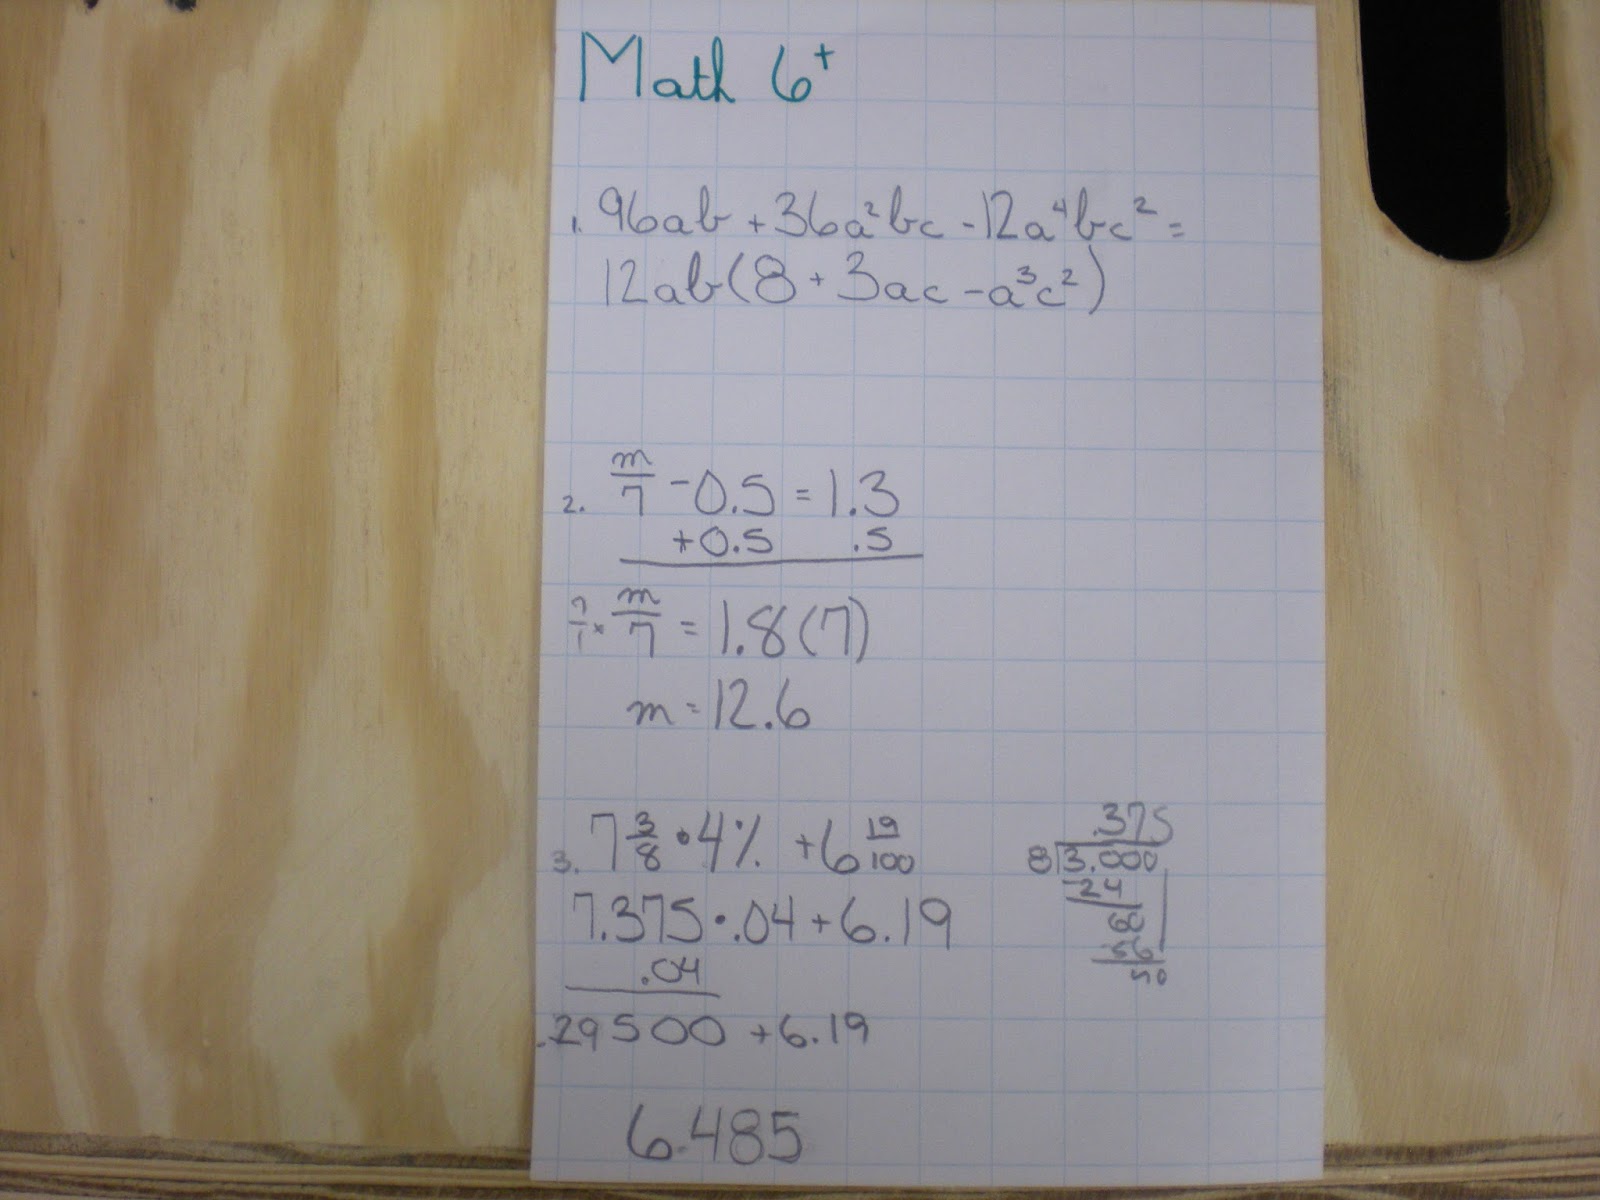 Math 6+
1. 96ab + 36a²bc - 12a⁴bc² =
12ab(8 + 3ac - a³c²)
2. m/7 - 0.5 = 1.3
+0.5 .5
7/1 × m/7 = 1.8(7)
m = 12.6
3. 7 3/8 • 4% + 6 19/100
7.375 • .04 + 6.19
.04
.29500 + 6.19
6.485
.375
8 3.000
-24
60
56